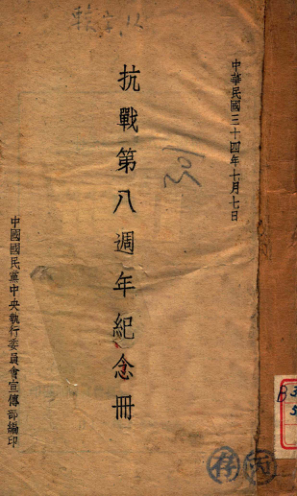 中華民國三十四年七月七日
抗戰第八週年紀念冊
中國國民黨中央執行委員會宣傳部編印
存
B